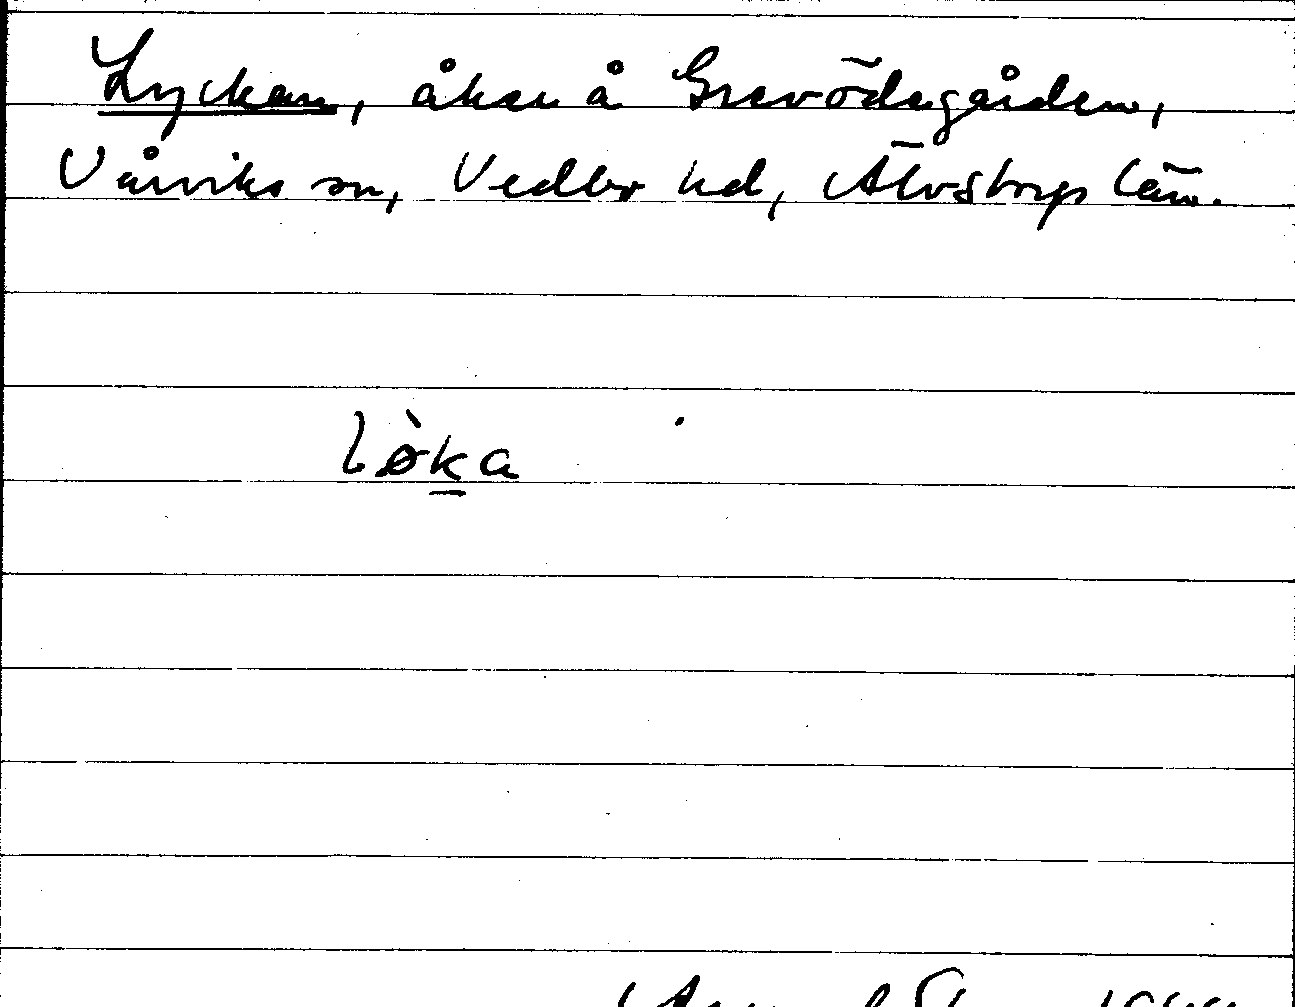 Lyckan, åker å Grevödegården,
Vårviks sn, Vedbo hd, Älvsborgs län.
lø̀ka